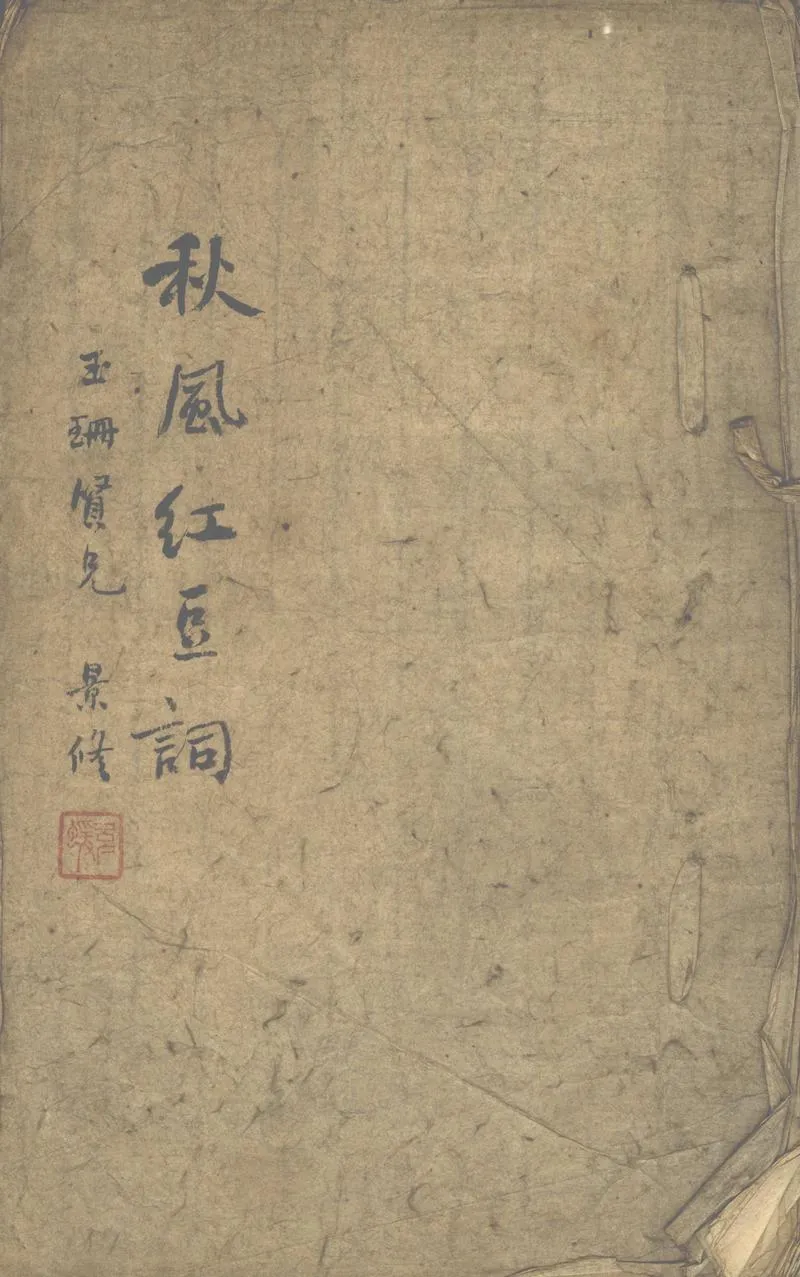 秋風紅豆詞
玉珊賢兄 景修